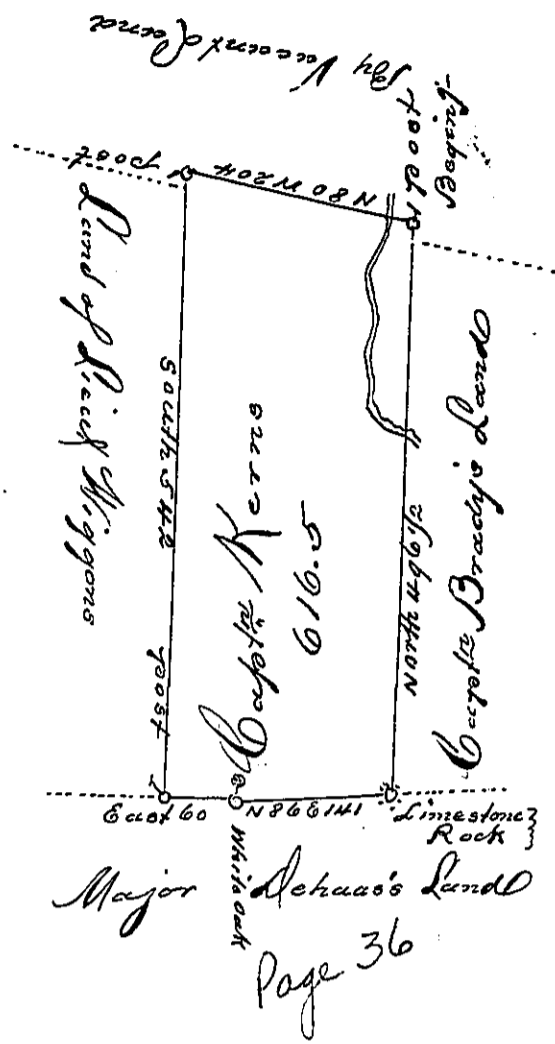 By Vacant Land
Begining
post
post
N 80 W 204
Land of Lieut Wiggons
South 542
post
Captn Kerns
616.5
North 496½
Captn Brady's Land
East 60
N 89 E 141
Limestone }
Rock }
White Oak
Major Dehaas's Land
Page 36